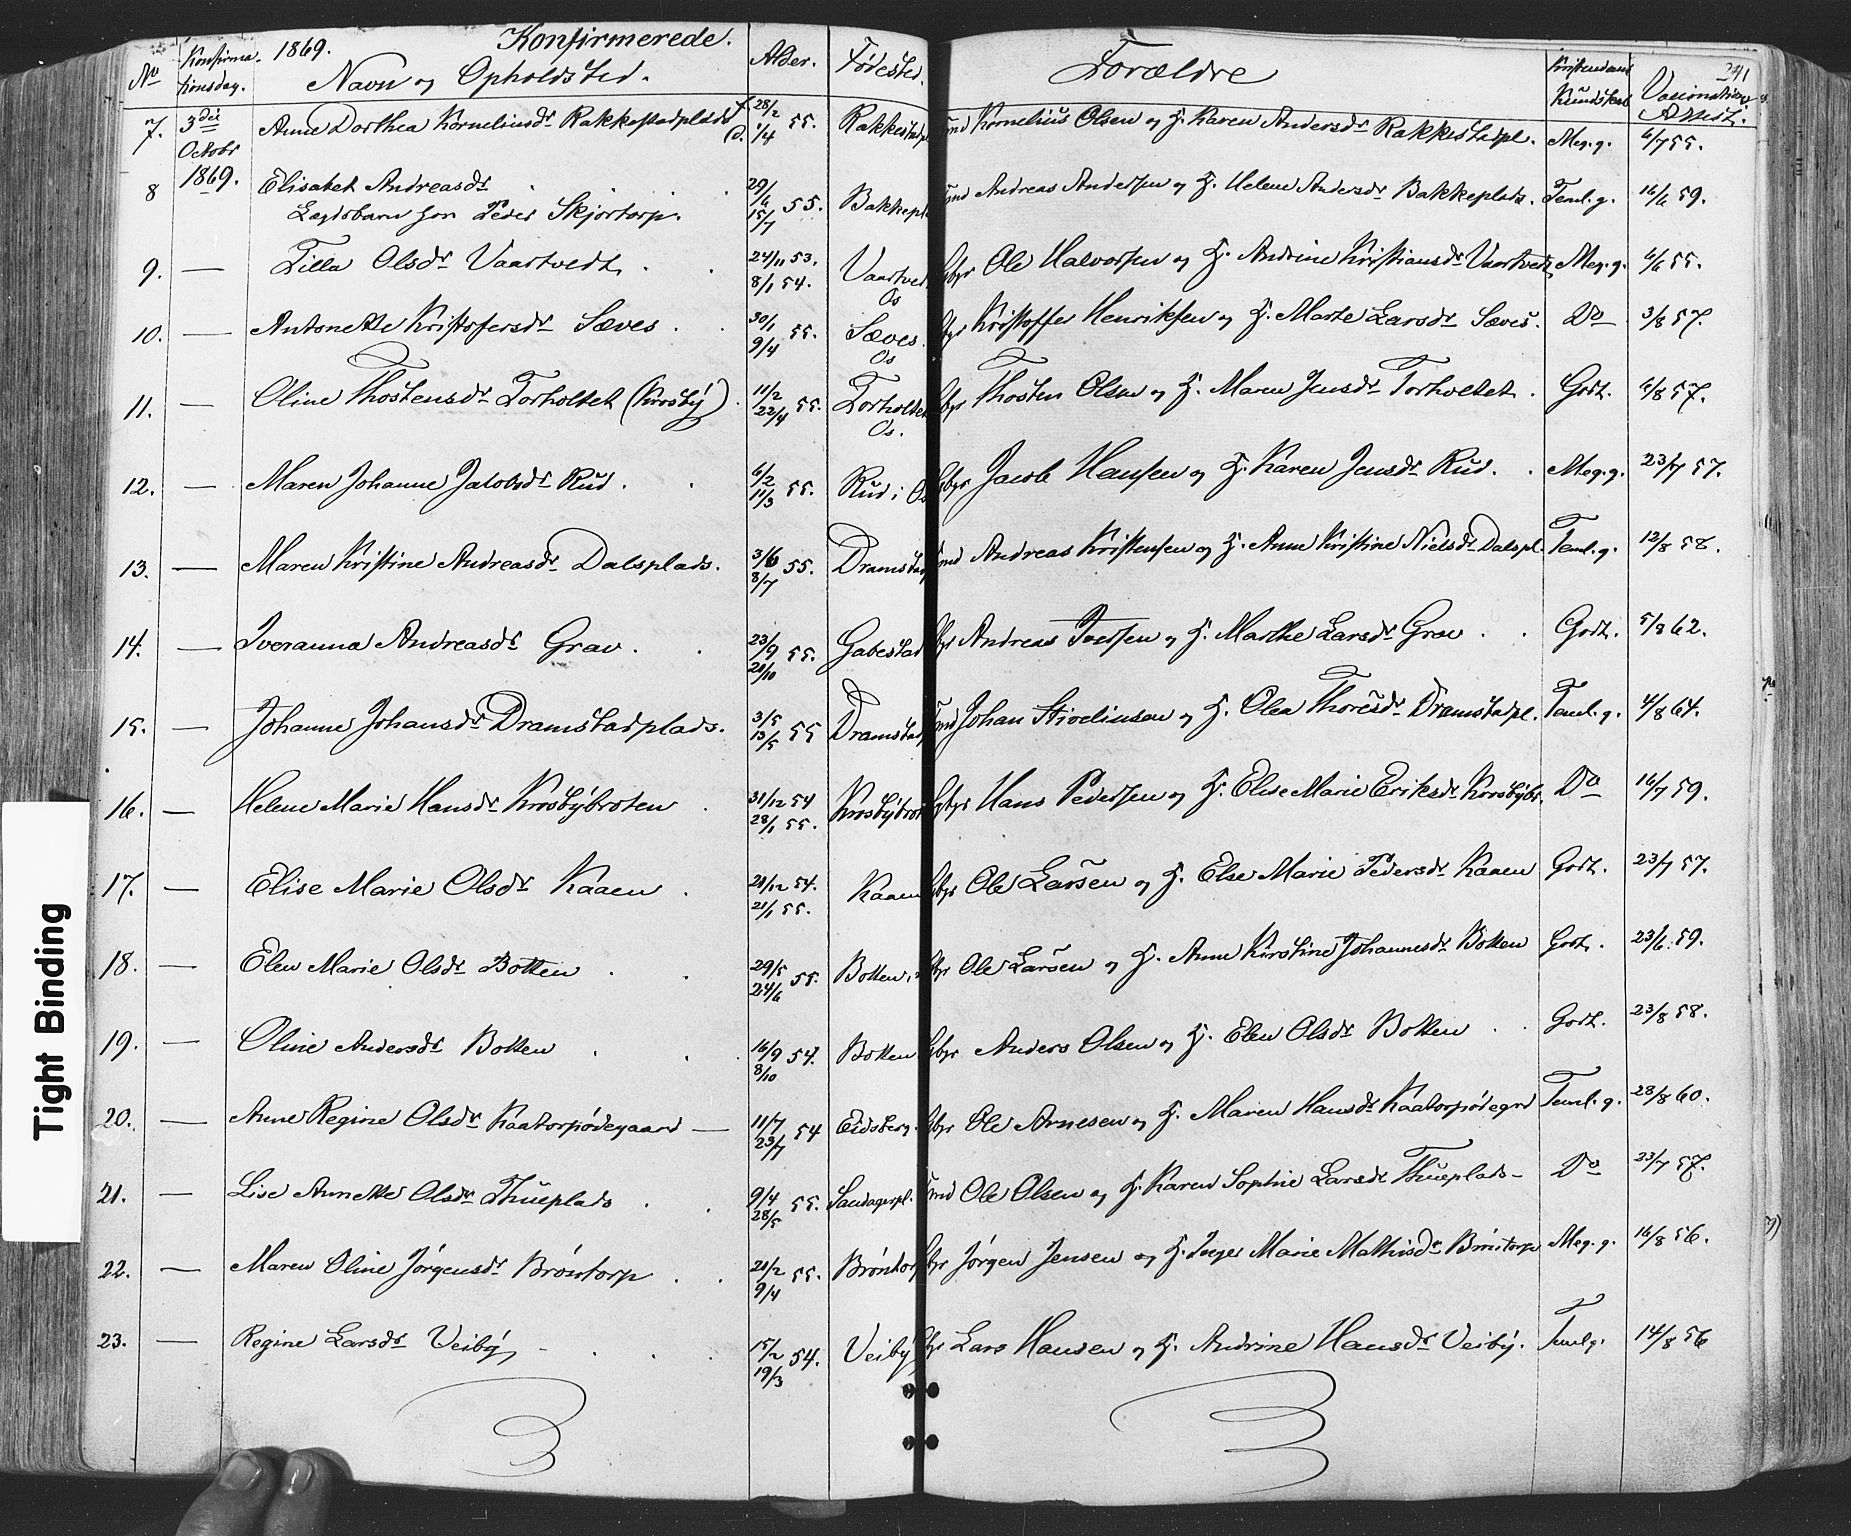 1869. Konfirmerede.
No Konfirma- tionsdag. Navn og Opholdsted. Alder. Fødested. Forældre Kristendoms Kundskab Vaccinations Attest. 241
7. 3die Octobr 1869. Anne Dorthea Korneliusdr Rakkestadplads f. 28/2 D. 1/4 55. Rakkestadpl Kornelius Olsen og H. Karen Andersdr Rakkestadpl. Meg. g. 6/7 55.
8 Elisabet Andreasdr 29/6 15/7 55. Bakkepl Andreas Andersen og H. Helene Andersdr Bakkeplads. Teml. g. 16/6 59.
Lægdsbarn hos Peder Skjortorp.
9. — Tilla Olsdr Vaartvedt 24/11 53. 8/1 54. Vaartvedt Os Gbr Ole Halvorsen og H. Andrine Kristiansdr Vaartvedt Meg. g. 6/6 55.
10. — Antonette Kristofersdr Sæves 30/1 9/4 55. Sæves. Os Kristoffer Henriksen og H. Marte Larsdr Sæves. Do 3/8 57.
11. — Oline Thostensdr Torholtet (Krosby) 11/2 22/4 55. Torholtet Os. Thosten Olsen og H. Maren Jensdr Torholtet. Godt. 6/8 57.
12. — Maren Johanne Jakobsdr Rud. 6/2 11/3 55. Rud i Os Jacob Hansen og H. Karen Jensdr Rud. Meg. g. 23/7 57.
13. — Maren Kristine Andreasdr Dalsplads. 3/6 8/7 55. Dramstad Andreas Kristensen og H. Anne Kristine Nielsdr Dalspl. Teml. g. 12/8 58.
14. — Iveranna Andreasdr Grav. 23/9 21/10 55. Gabestad Andreas Iversen og H. Marthe Larsdr Grav Godt. 5/8 62.
15. — Johanne Johansdr Dramstadplads. 3/5 13/5 55 Dramstad Johan H. Olea Thoresdr Dramstadpl. Teml. g. 4/8 64.
16. — Helene Marie Hansdr Krosbybroten 31/12 54 28/1 55. Krosbybrot Hans Pedersen og H. Elise Marie Eriksdr Krosbybr. Do 16/7 59.
17. — Elise Marie Olsdr Kaaen 21/12 54. 21/1 55. Kaaen Ole Larsen og H. Else Marie Pedersdr Kaaen Godt. 23/7 57.
18. — Elen Marie Olsdr Botten 29/5 24/6 55. Botten Ole Larsen og H. Anne Kirstine Johannesdr Botten Godt. 23/6 59.
19. — Oline Andersdr Botten 16/9 8/10 54. Botten Anders Olsen og H. Elen Olsdr Botten Godt. 23/8 58.
20. — Anne Regine Olsdr Kaatorpødegaard — 11/7 23/7 54 Eidsberg. Ole Arnesen og H. Maren Hansdr Kaatorpødegrd Teml. g. 28/8 60.
21. — Lise Annette Olsdr Thueplads 9/4 28/5 55. Sandagerpl. Ole Olsen og H. Karen Sophie Larsdr Thueplads — Do 23/7 57.
22. — Maren Oline Jørgensdr Brøntorp 21/2 9/4 55. Brøntorp Jørgen Jensen og H. Inger Marie Mathisdr Brøntorp Meg. g. 16/8 56.
23. — Regine Larsdr Veiby 15/2 19/3 54. Veiby Lars Hansen og H. Andrine Hansdr Veiby. Teml g. 14/8 56
Tight Binding